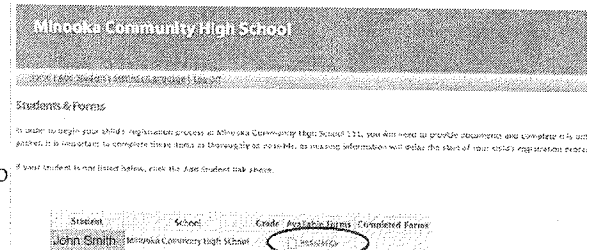 Minooka Community High School
Students & Forms
In order to begin your child's registration process at Minooka Community High School 111, you will need to provide documents and complete
packet. It is important to complete these items as thoroughly as possible, as missing information will delay the start of your child's registration
If your student is not listed below, click the Add Student link above.
Student School Grade Available Forms Completed Forms
John Smith Minooka Community High School